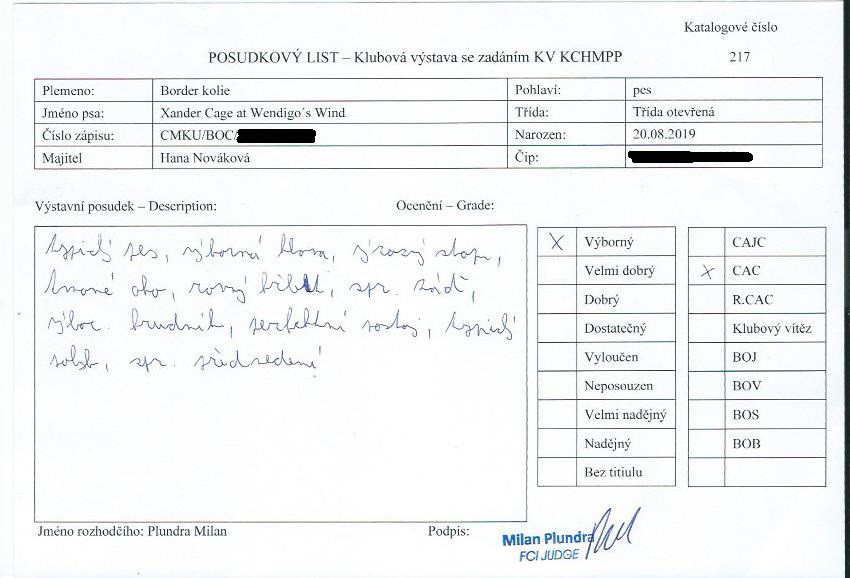 Katalogové číslo
POSUDKOVÝ LIST – Klubová výstava se zadáním KV KCHMPP 217
Plemeno: Border kolie Pohlaví: pes
Jméno psa: Xander Cage at Wendigo´s Wind Třída: Třída otevřená
Číslo zápisu: CMKU/BOC/ Narozen: 20.08.2019
Majitel Hana Nováková Čip:
Výstavní posudek – Description: Ocenění – Grade:
typický pes, výborná hlava, výrazný stop,
tmavé oko, rovný hřbet, spr. záď,
výbor. hrudník, perfektní postoj, typický
pohyb, spr. předvedení
X Výborný CAJC
Velmi dobrý X CAC
Dobrý R.CAC
Dostatečný Klubový vítěz
Vyloučen BOJ
Neposouzen BOV
Velmi nadějný BOS
Nadějný BOB
Bez titiulu
Jméno rozhodčího: Plundra Milan Podpis:
Milan Plundra
FCI JUDGE